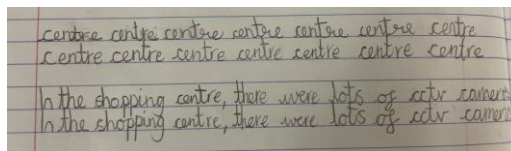 centre centre centre centre centre centre centre
centre centre centre centre centre centre centre
In the shopping centre, there were lots of cctv camera
In the shopping centre, there were lots of cctv camer